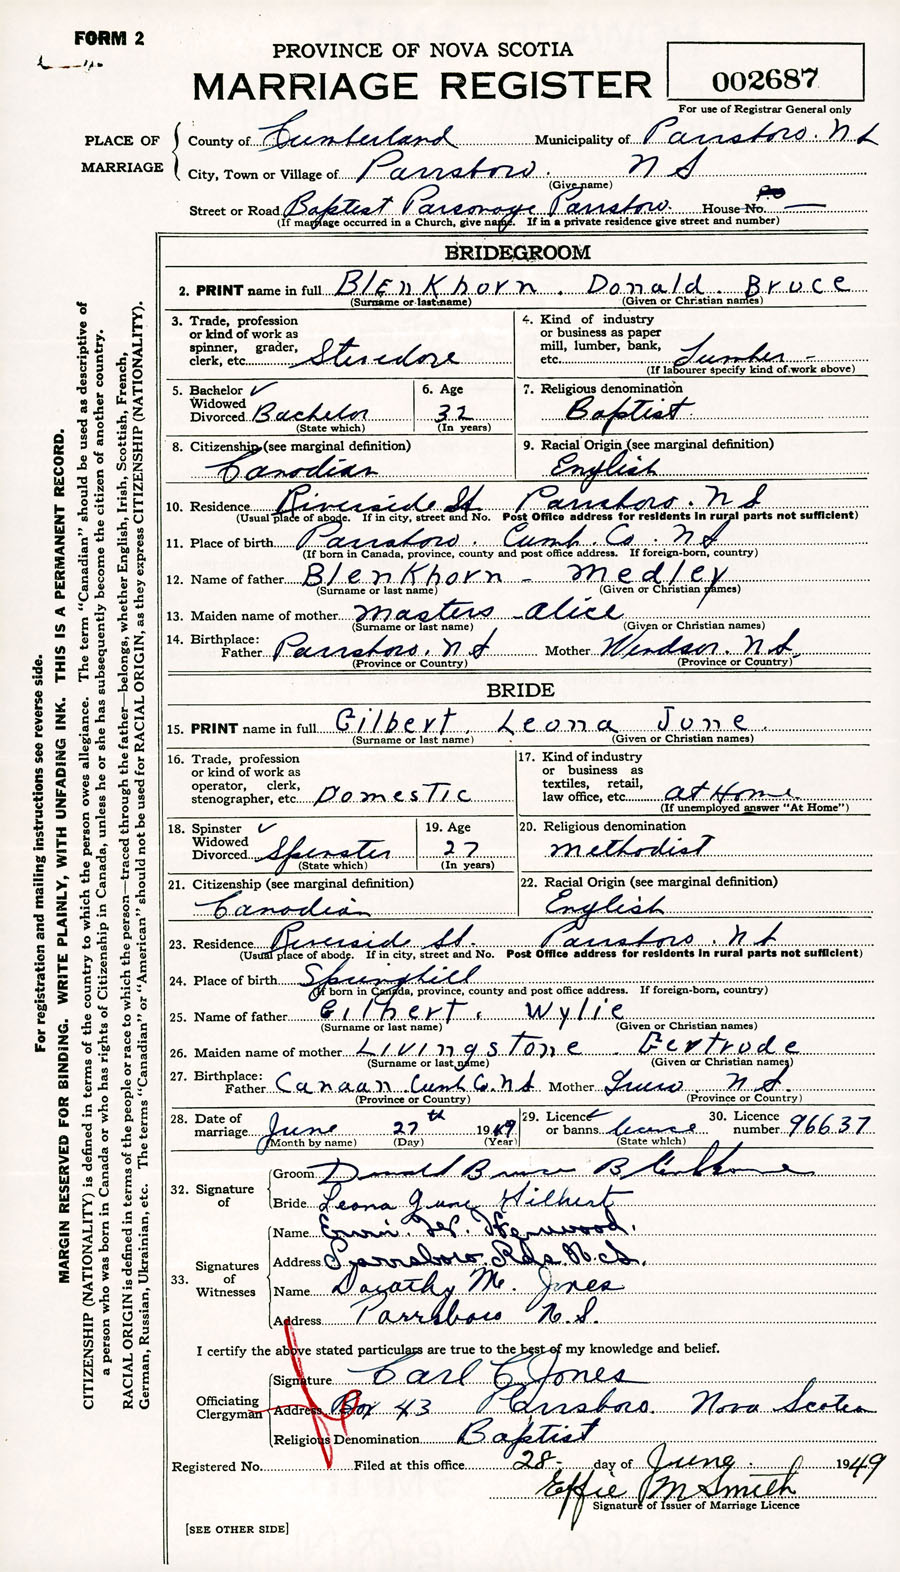 FORM 2
PROVINCE OF NOVA SCOTIA
MARRIAGE REGISTER
002687
For use of Registrar General only
PLACE OF MARRIAGE
County of Cumberland Municipality of Parrsboro. N S
City, Town or Village of Parrsboro. N S
(Give name)
Street or Road Baptist Parsonage Parrsboro. House No. —
(If marriage occurred in a Church, give name. If in a private residence give street and number)
BRIDEGROOM
2. PRINT name in full Blenkhorn. Donald. Bruce
(Surname or last name) (Given or Christian names)
3. Trade, profession or kind of work as spinner, grader, clerk, etc. Stevedore
4. Kind of industry or business as paper mill, lumber, bank, etc. Lumber -
(If labourer specify kind of work above)
5. Bachelor ✓ Widowed Divorced Bachelor
(State which)
6. Age 32
(In years)
7. Religious denomination Baptist.
8. Citizenship (see marginal definition) Canadian
9. Racial Origin (see marginal definition) English
10. Residence Riverside St Parrsboro. N S
(Usual place of abode. If in city, street and No. Post Office address for residents in rural parts not sufficient)
11. Place of birth Parrsboro. Cumb. Co. N S
(If born in Canada, province, county and post office address. If foreign-born, country)
12. Name of father Blenkhorn - Medley
(Surname or last name) (Given or Christian names)
13. Maiden name of mother Masters Alice
(Surname or last name) (Given or Christian names)
14. Birthplace: Father Parrsboro. N S Mother Windsor. N.S.
(Province or Country) (Province or Country)
BRIDE
15. PRINT name in full Gilbert. Leona June.
(Surname or last name) (Given or Christian names)
16. Trade, profession or kind of work as operator, clerk, stenographer, etc. Domestic
17. Kind of industry or business as textiles, retail, law office, etc. at Home.
(If unemployed answer "At Home")
18. Spinster ✓ Widowed Divorced Spinster
(State which)
19. Age 27
(In years)
20. Religious denomination Methodist
21. Citizenship (see marginal definition) Canadian
22. Racial Origin (see marginal definition) English
23. Residence Riverside St. Parrsboro. N S
(Usual place of abode. If in city, street and No. Post Office address for residents in rural parts not sufficient)
24. Place of birth Springhill
(If born in Canada, province, county and post office address. If foreign-born, country)
25. Name of father Gilbert. Wylie
(Surname or last name) (Given or Christian names)
26. Maiden name of mother Livingstone. Gertrude
(Surname or last name) (Given or Christian names)
27. Birthplace: Father Canaan. Cumb Co. N S Mother Truro N.S.
(Province or Country) (Province or Country)
28. Date of marriage June 27th 1949
(Month by name) (Day) (Year)
29. Licence ✓ or banns licence
(State which)
30. Licence number 96637
32. Signature of
Groom Donald Bruce Blenkhorne
Bride Leona June Gilbert
33. Signatures of Witnesses
Name W.
Address Parrsboro Rds N.S.
Name Dorothy M. Jones
Address Parrsboro N.S.
I certify the above stated particulars are true to the best of my knowledge and belief.
Officiating Clergyman
Signature Carl C Jones
Address Box 43 Parrsboro. Nova Scotia
Religious Denomination Baptist
Registered No. Filed at this office 28- day of June. 1949
Effie M Smith
Signature of Issuer of Marriage Licence
[SEE OTHER SIDE]
For registration and mailing instructions see reverse side.
MARGIN RESERVED FOR BINDING. WRITE PLAINLY, WITH UNFADING INK. THIS IS A PERMANENT RECORD.
CITIZENSHIP (NATIONALITY) is defined in terms of the country to which the person owes allegiance. The term "Canadian" should be used as descriptive of
a person who was born in Canada or who has rights of Citizenship in Canada, unless he or she has subsequently become the citizen of another country.
RACIAL ORIGIN is defined in terms of the people or race to which the person—traced through the father—belongs, whether English, Irish, Scottish, French,
German, Russian, Ukrainian, etc. The terms "Canadian" or "American" should not be used for RACIAL ORIGIN, as they express CITIZENSHIP (NATIONALITY).